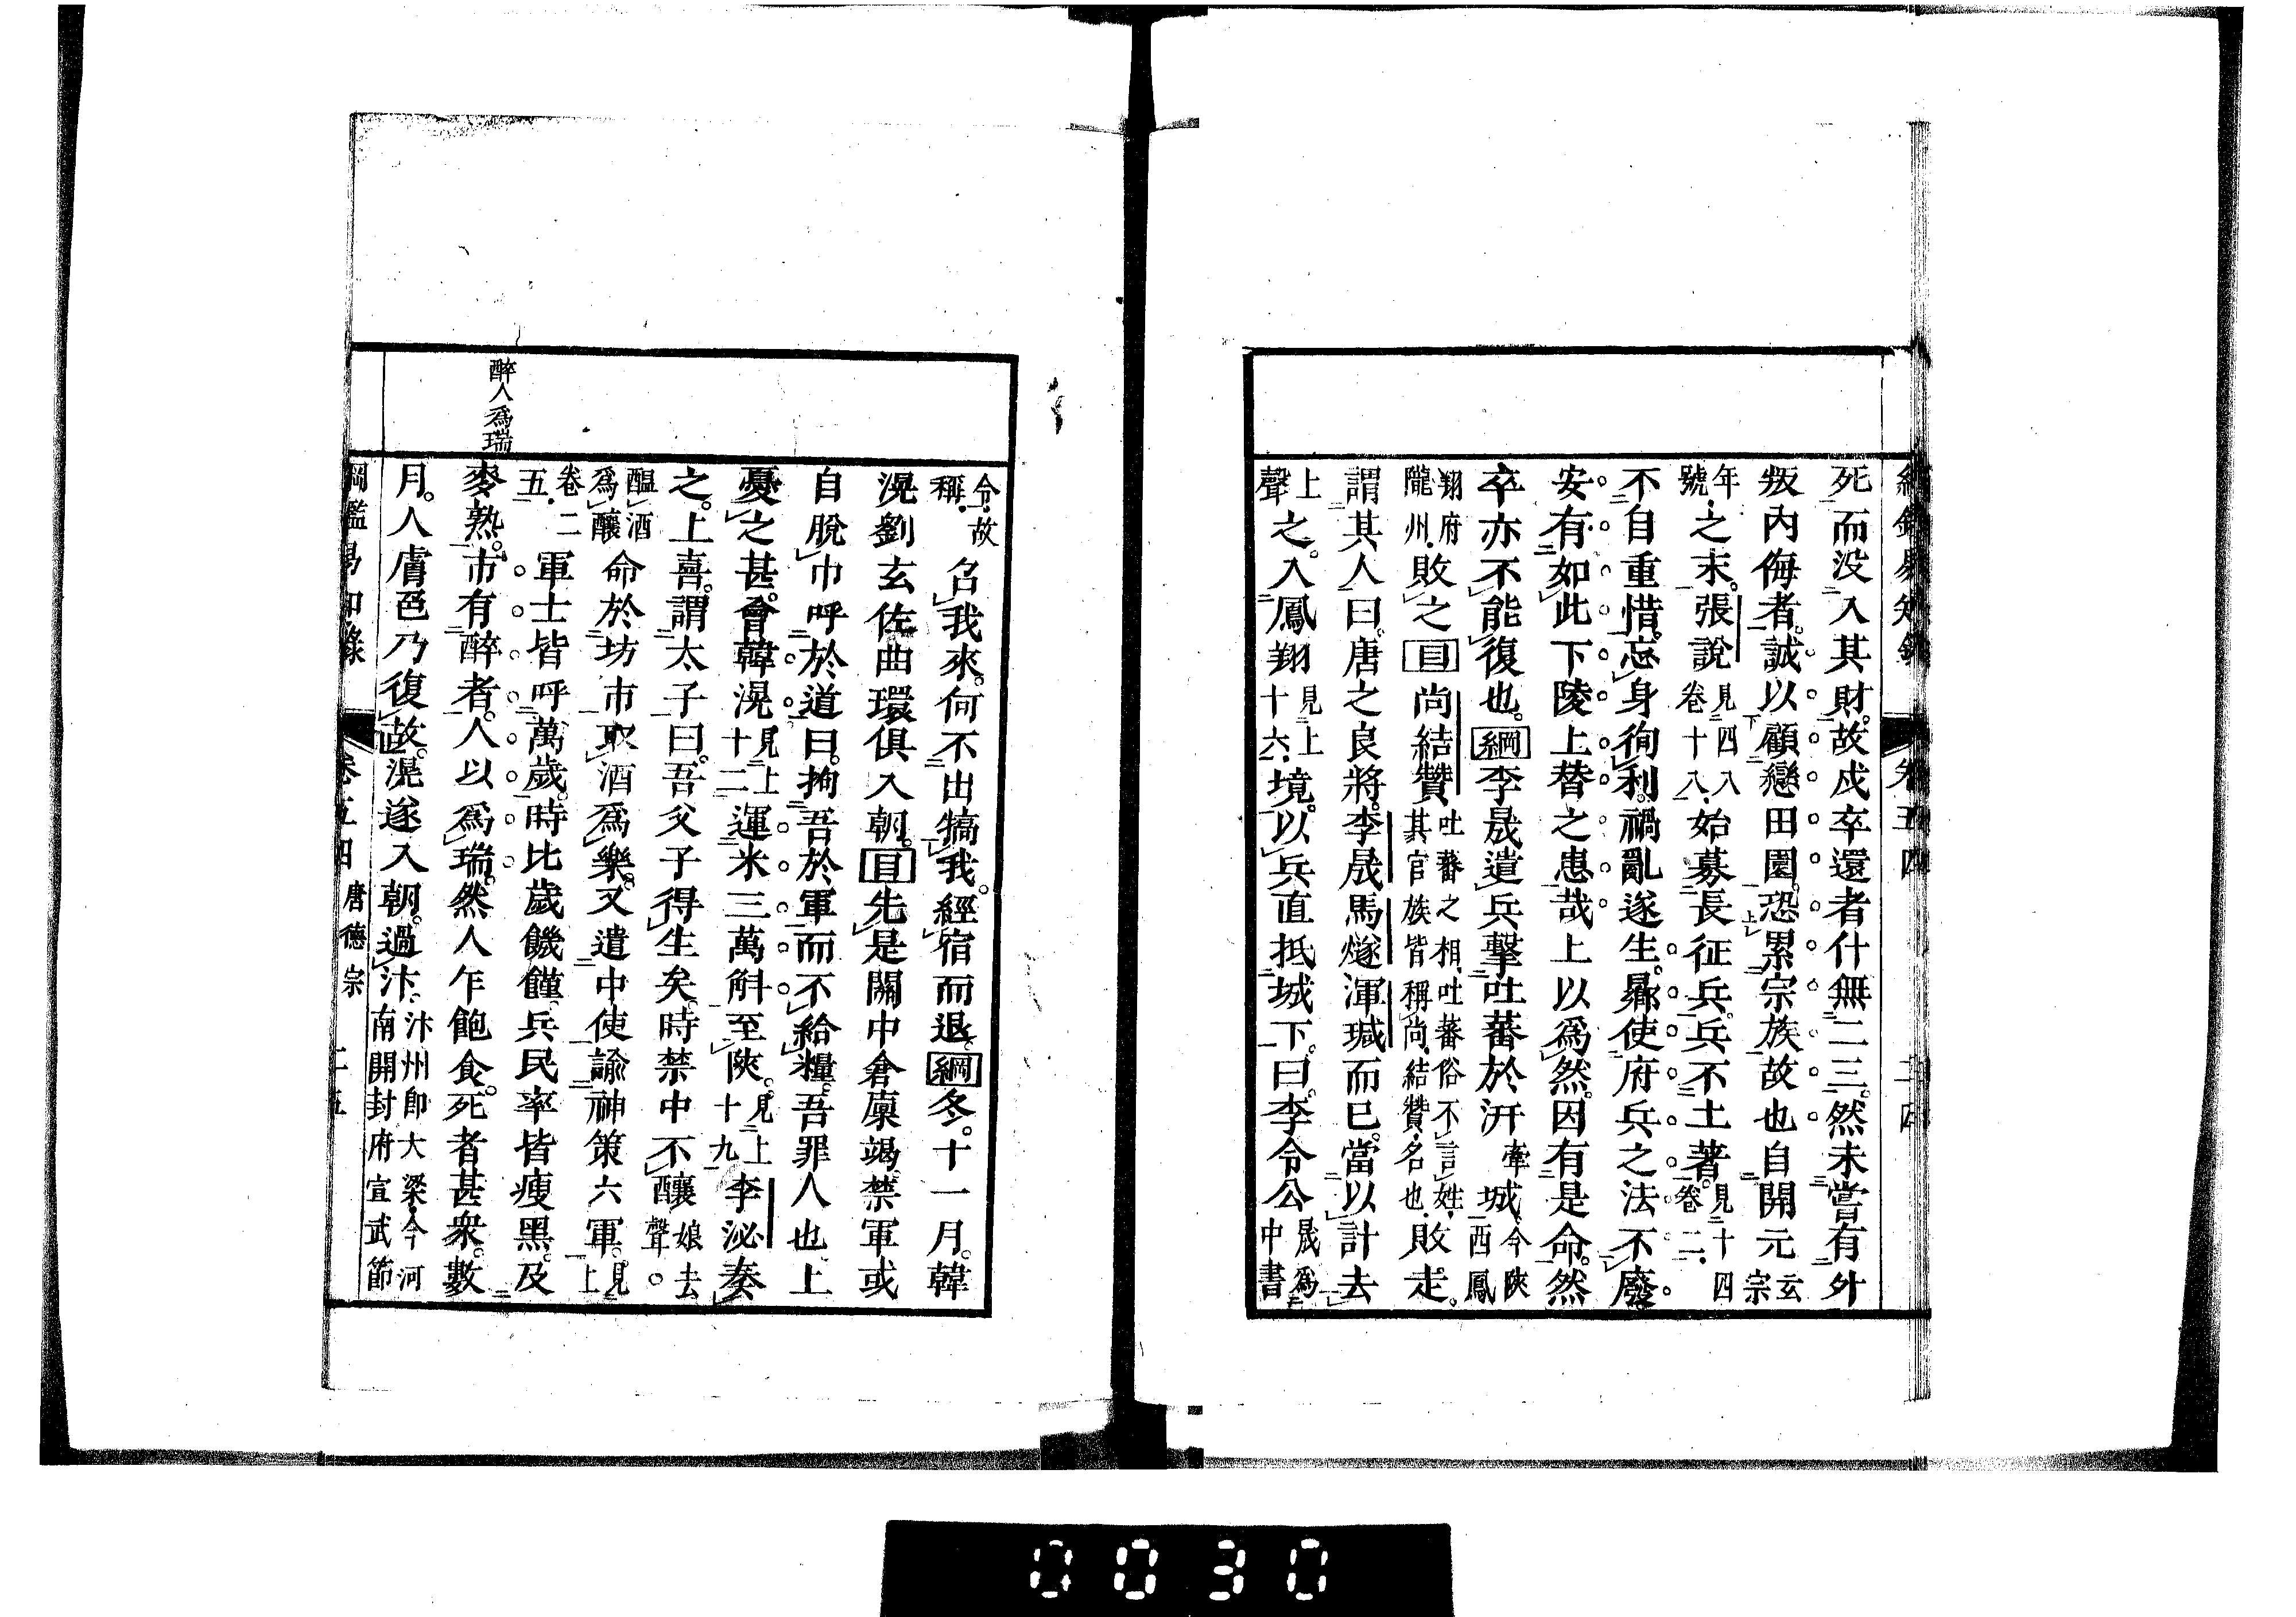 死而没入其財。故戍卒還者什無二三。然未嘗有外
叛內侮者。誠以顧戀田園。恐累宗族故也自開元玄宗
年號。之末。張說見四八卷十八。始募長征兵。兵不土著。見十四卷二。
不自重惜。忘身徇利。禍亂遂生。曏使府兵之法不廢。
安有如此下陵上替之患哉上以爲然。因有是命。然
卒亦不能復也。綱李晟遣兵擊吐蕃於汧牽城今陝西鳳
翔府隴州。敗之目尚結贊吐蕃之相、吐蕃俗不言姓、其官族皆稱尚、結贊、名也、敗走。
謂其人曰。唐之良將。李晟馬燧渾瑊而已。當以計去
上聲之。入鳳翔見上十六。境。以兵直抵城下。曰。李令公晟爲中書
卷五四
令。故稱。名我來。何不出犒我。經宿而退。綱冬。十一月。韓
滉劉玄佐曲環俱入朝。目先是關中倉廩竭。禁軍或
自脫巾呼於道曰。拘吾於軍而不給糧。吾罪人也上
憂之甚。會韓滉見上十二運米三萬斛至陝。見上十九李泌奏
之。上喜。謂太子曰。吾父子得生矣。時禁中不釀娘去聲。
醖酒爲釀命於坊市取酒爲樂。又遣中使諭神策六軍。見上
卷二五。軍士皆呼萬歲。時比歲饑饉。兵民率皆瘦黑。及
醉人爲瑞
麥熟。市有醉者。人以爲瑞。然人乍飽食。死者甚衆。數
月。人膚色乃復故。滉遂入朝。過汴。汴州卽大梁。今河南開封府宣武節
綱鑑易知錄 卷五四 唐德宗 二五